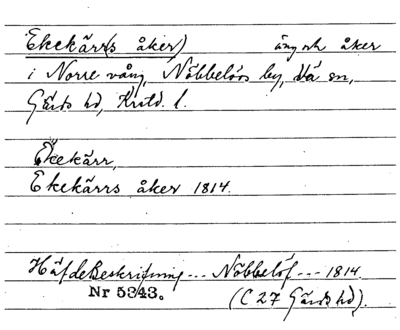 Ekekärr(s åker) äng och åker
i Norre vång, Nöbbelövs by, Vä sn,
Gärds hd, Krstd. l.
Ekekärr,
Ekekärrs åker 1814.
Häfdebeskrifning --- Nöbbelöf --- 1814
Nr 5343. (C 27 Gärds hd).